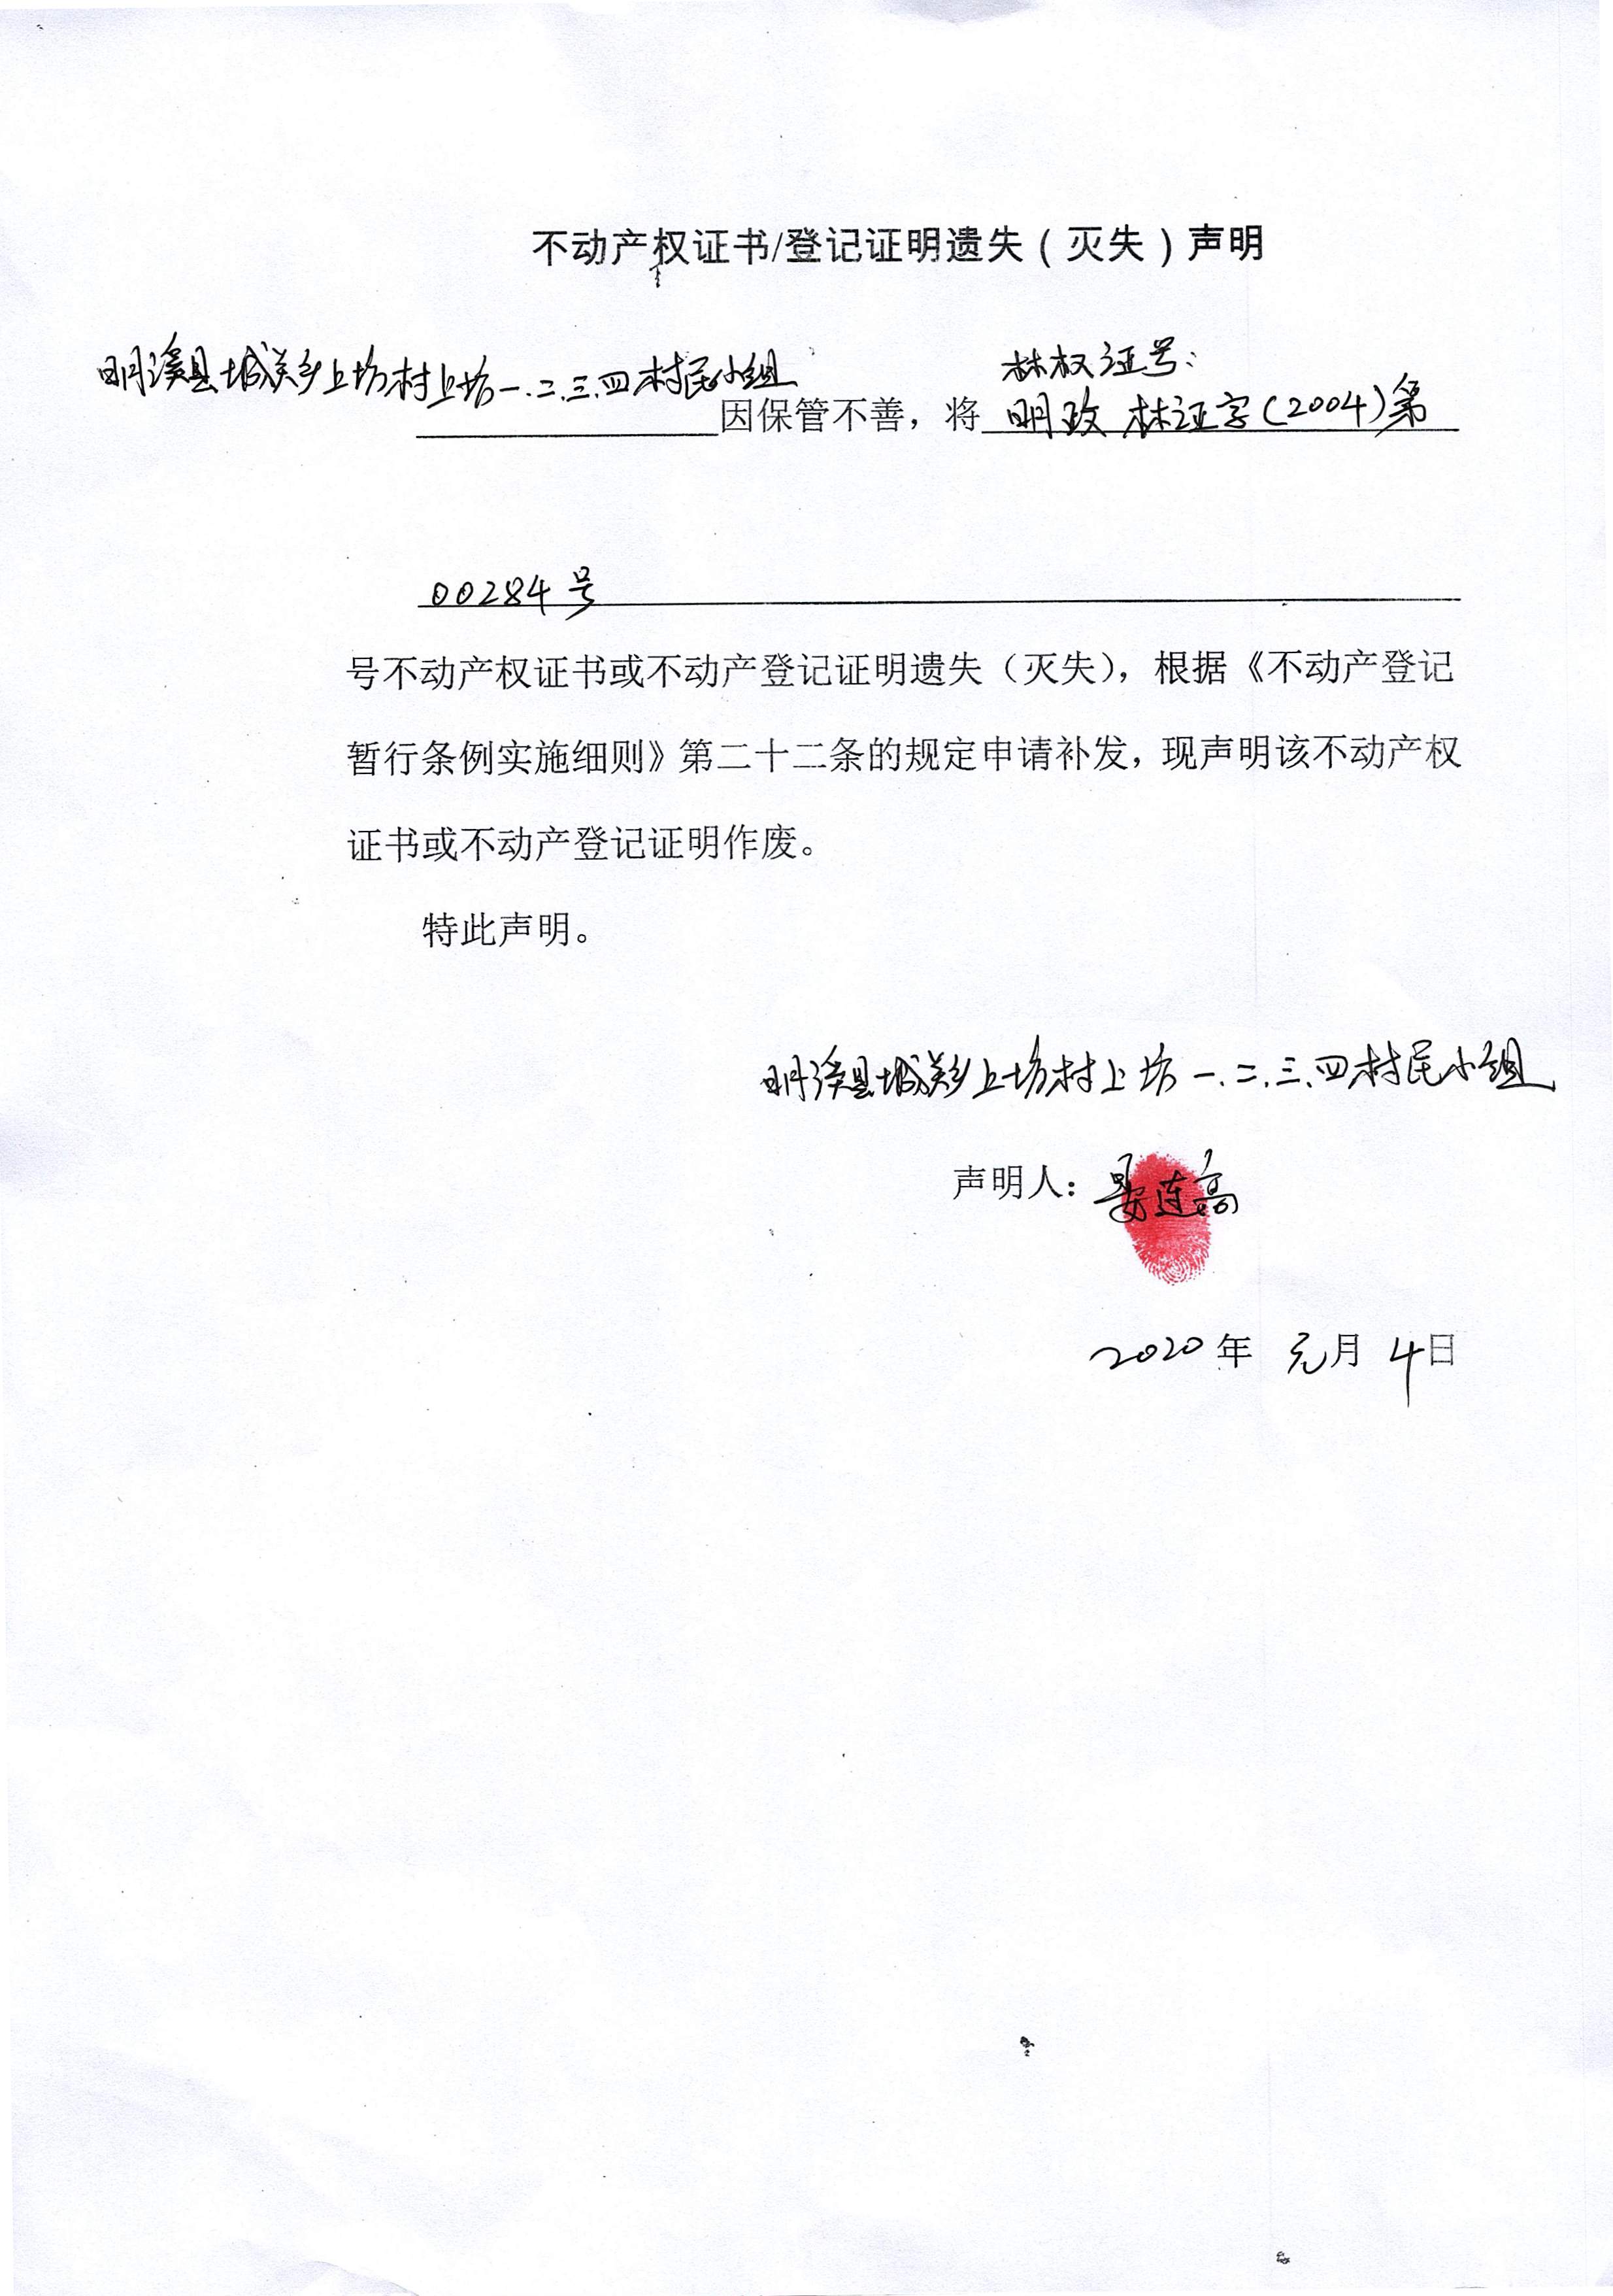 不动产权证书/登记证明遗失（灭失）声明
明溪县城关乡上坊村上坊一.二.三.四村民小组
林权证号：
因保管不善，将 明政林证字(2004)第
00284号
号不动产权证书或不动产登记证明遗失（灭失），根据《不动产登记
暂行条例实施细则》第二十二条的规定申请补发，现声明该不动产权
证书或不动产登记证明作废。
特此声明。
明溪县城关乡上坊村上坊一.二.三.四村民小组
声明人：连高
2020年 元月 4日